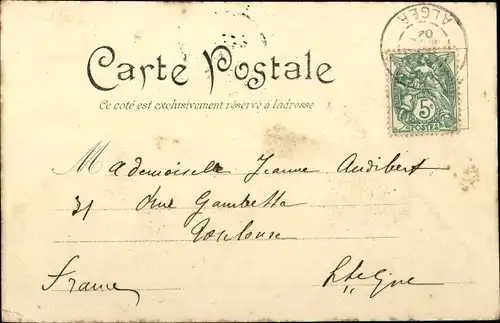 ALGER
04
Carte Postale
Ce coté est exclusivement réservé à l'adresse
5c
POSTES
Mademoiselle Jeanne Audibert
31 Rue Gambetta
Toulouse
France Hte Gne